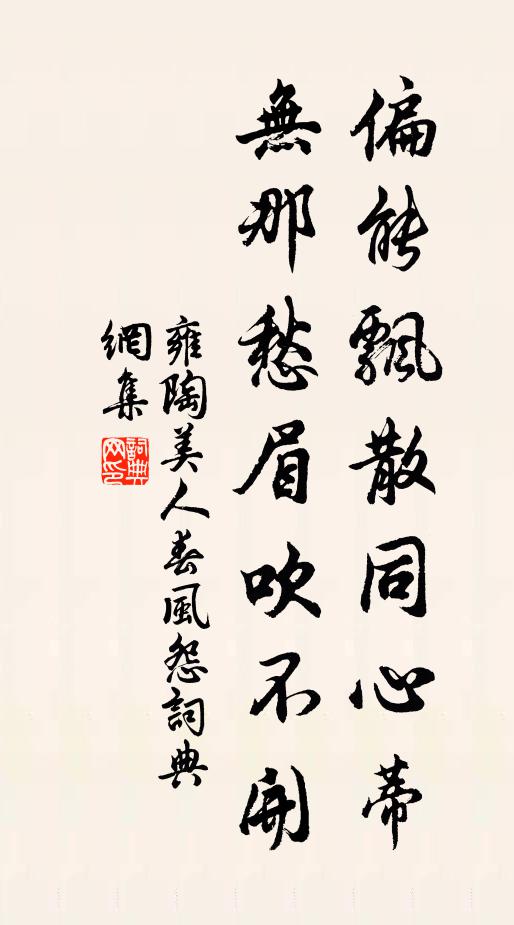 偏能飄散同心蒂
無那愁眉吹不開
雍陶美人春風怨詞典
網集
詞典
网印